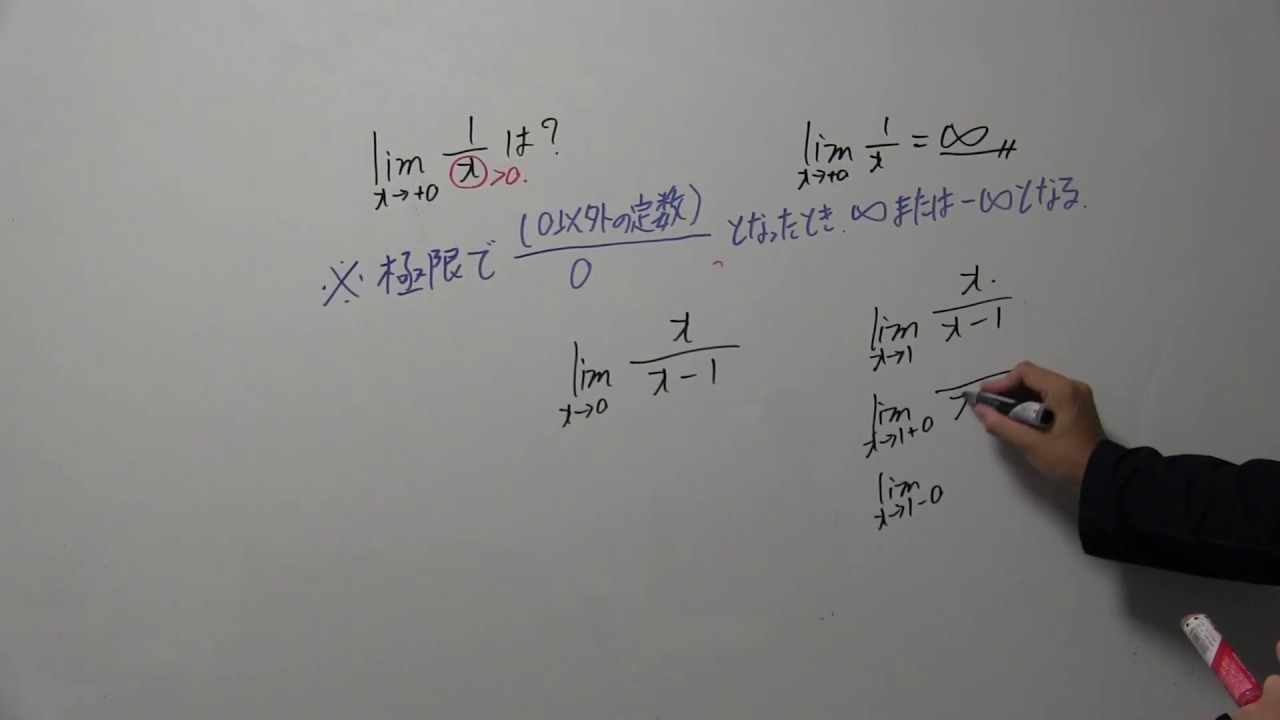 lim x→+0 1/x は? x>0.
lim x→+0 1/x = ∞
※ 極限で (0以外の定数)/0 となったとき. ∞または-∞となる.
lim x→0 x/(x-1)
lim x→1 x/(x-1)
lim x→1+0 x
lim x→1-0